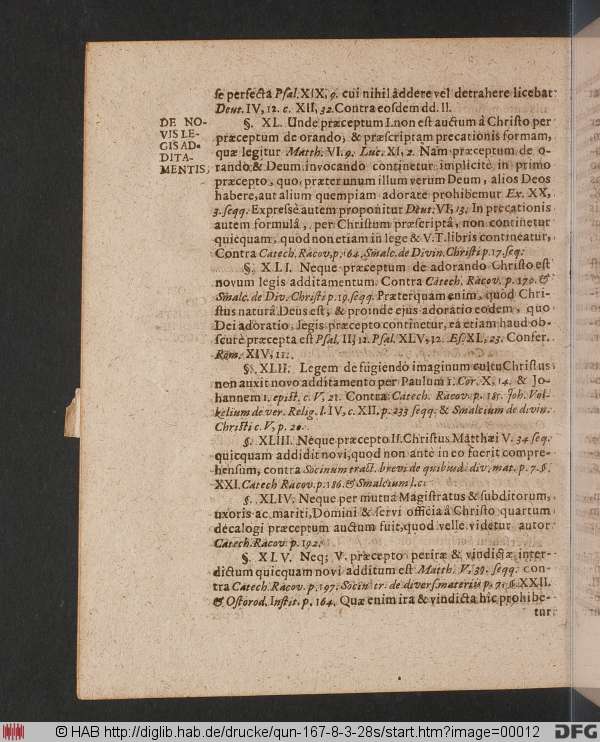 se perfecta Psal. XIX, 9. cui nihil addere vel detrahere licebat
Deut. IV, 12. c. XII, 32. Contra eosdem dd. ll.
DE NO-
VIS LE-
GIS AD-
DITA-
MENTIS.
§. XL. Unde præceptum I. non est auctum â Christo per
præceptum de orando, & præscriptam precationis formam,
quæ legitur Matth. VI. 9. Luc. XI, 2. Nam præceptum de o-
rando & Deum invocando continetur implicitè in primo
præcepto, quo, præter unum illum verum Deum, alios Deos
habere, aut alium quempiam adorare prohibemur Ex. XX,
3. seqq. Expressè autem proponitur Deut. VI, 13. In precationis
autem formulâ, per Christum præscriptâ, non continetur
quicquam, quod non etiam in lege & V.T. libris contineatur,
Contra Catech. Racov. p. 164. Smalc. de Divin. Christi p. 17. seq.
§. XLI. Neque præceptum de adorando Christo est
novum legis additamentum. Contra Catech. Racov. p. 170. &
Smalc. de Div. Christi p. 19. seqq. Præterquam enim, quod Chri-
stus naturâ Deus est, & proinde ejus adoratio eodem, quo
Dei adoratio, legis præcepto continetur, ea etiam haud ob-
scurè præcepta est Psal. II, 12. Psal. XLV, 12. Es. XL, 23. Confer.
Rom. XIV, 11.
§. XLII. Legem de fugiendo imaginum cultu Christus
non auxit novo additamento per Paulum 1. Cor. X, 14. & Jo-
hannem 1. epist. c. V, 21. Contra Catech. Racov. p. 185. Joh. Vol-
kelium de ver. Relig. l. IV, c. XII, p. 233 seqq. & Smalcium de divin.
Christi c. V, p. 20.
§. XLIII. Neque præcepto II. Christus Matthæi V. 34 seq.
quicquam addidit novi, quod non ante in eo fuerit compre-
hensum, contra Socinum tract. brevi de quibusd. div. mat. p. 7. §.
XXI. Catech Racov. p. 186. & Smalcium l. c.
§. XLIV. Neque per mutua Magistratus & subditorum,
uxoris ac mariti, Domini & servi officia â Christo quartum
decalogi præceptum auctum fuit, quod velle videtur autor
Catech. Racov. p. 192.
§. XLV. Neq; V. præcepto per iræ & vindictæ inter-
dictum quicquam novi additum est Matth. V. 39. seqq. con-
tra Catech. Racov. p. 197. Socin tr. de divers. materiis p. 7. §. XXII.
& Ostorod. Instit. p. 164. Quæ enim ira & vindicta hic prohibe-
tur
© HAB http://diglib.hab.de/drucke/qun-167-8-3-28s/start.htm?image=00012
DFG